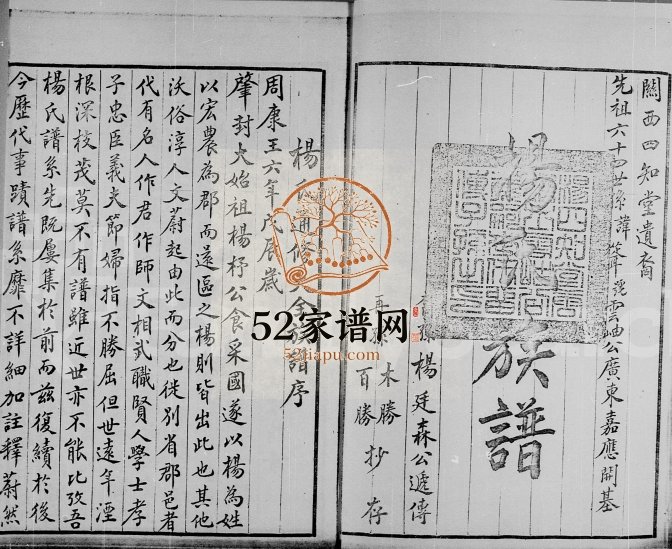 關西四知堂遺裔
先祖六十四世孫諱雲岫公廣東嘉應開基
楊氏族譜
孫楊廷森公遞傳
木勝
百勝
抄存
楊氏修全族譜序
周康王六年戊辰歲
肇封大始祖楊杼公食采國遂以楊為姓
以宏農為郡而遠區之楊則皆出此也其他
沃俗淳人文蔚起由此而分也徙別省郡邑者
代有名人作君作師文相武職賢人學士孝
子忠臣義夫節婦指不勝屈但世遠年湮
根深枝茂莫不有譜雖近世亦不能比攷吾
楊氏譜系先既屢集於前而茲復續於後
今歷代事蹟譜系靡不詳細加註釋蔚然
52家谱网
52hapu.com